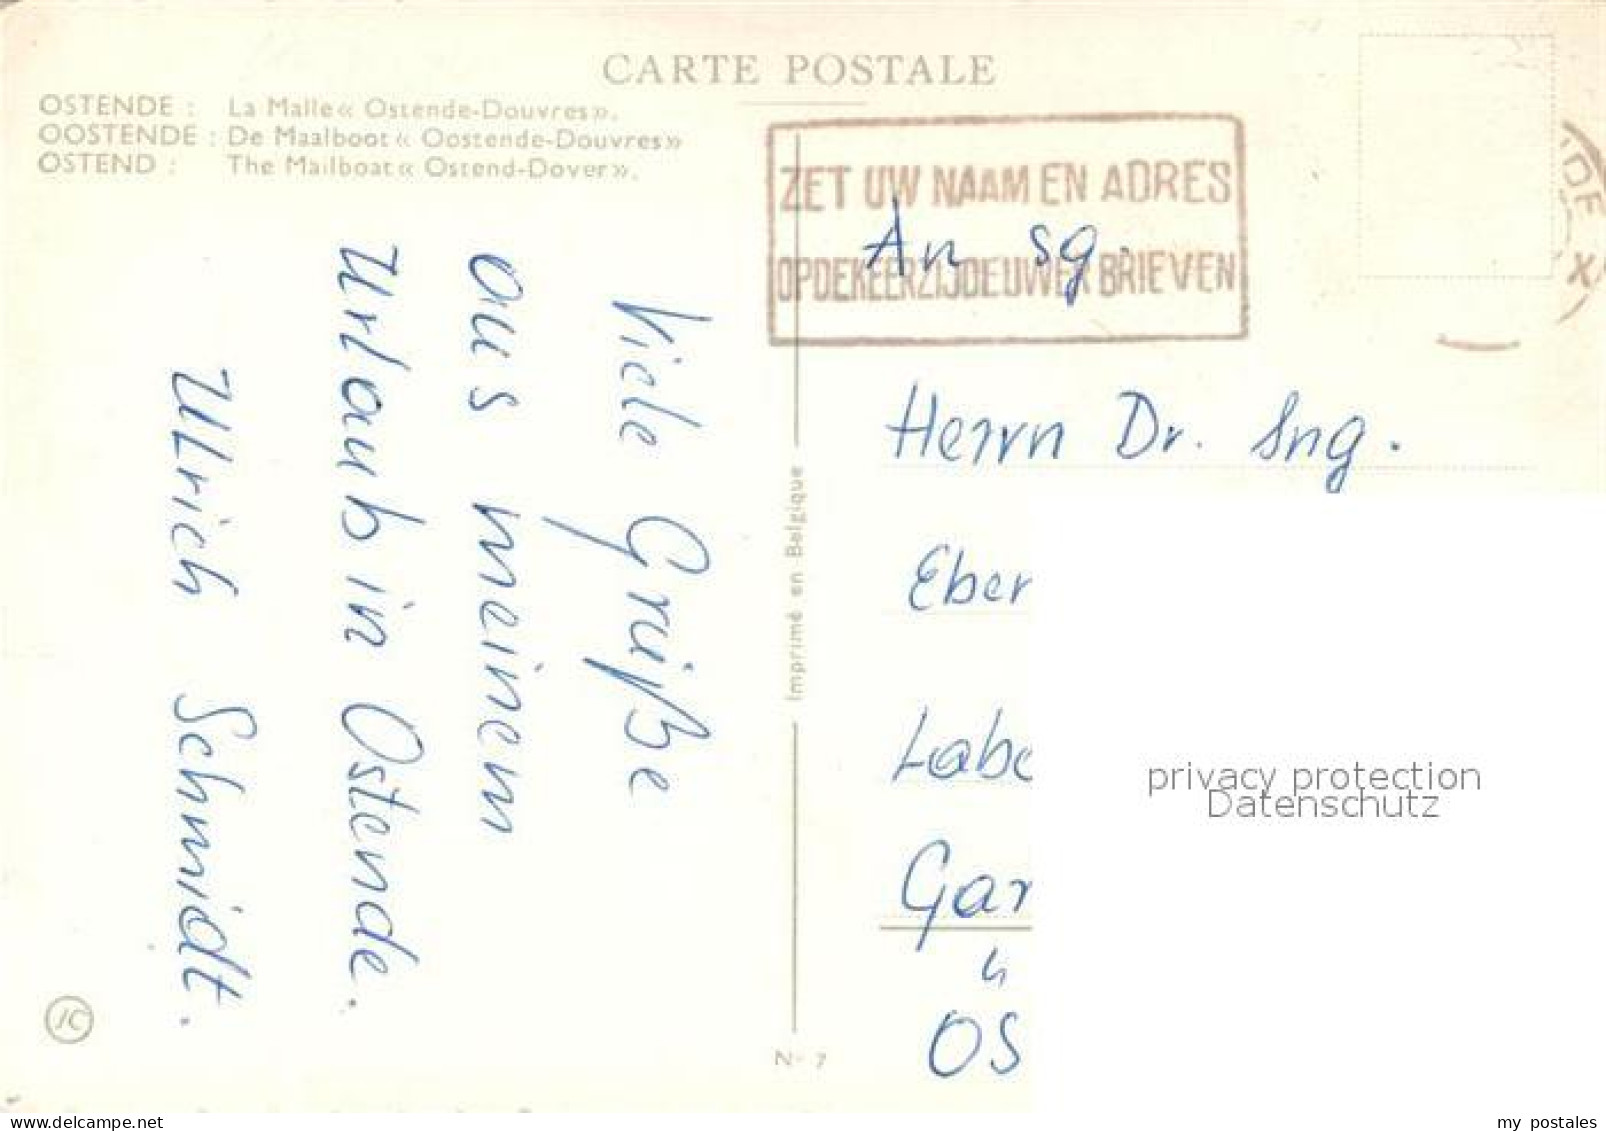 CARTE POSTALE
OSTENDE : La Malle « Ostende-Douvres ».
OOSTENDE : De Maalboot « Oostende-Douvres »
OSTEND : The Mailboat « Ostend-Dover ».
ZET UW NAAM EN ADRES
OP DE KEERZIJDE UWER BRIEVEN
Viele Grüße
aus meinem
Urlaub in Ostende.
Ulrich Schmidt.
Imprimé en Belgique
An Sg.
Herrn Dr. Ing.
Eber
Labe
Gar
OS
privacy protection
Datenschutz
JC
N° 7
NDE
X
www.delcampe.net
my_postales